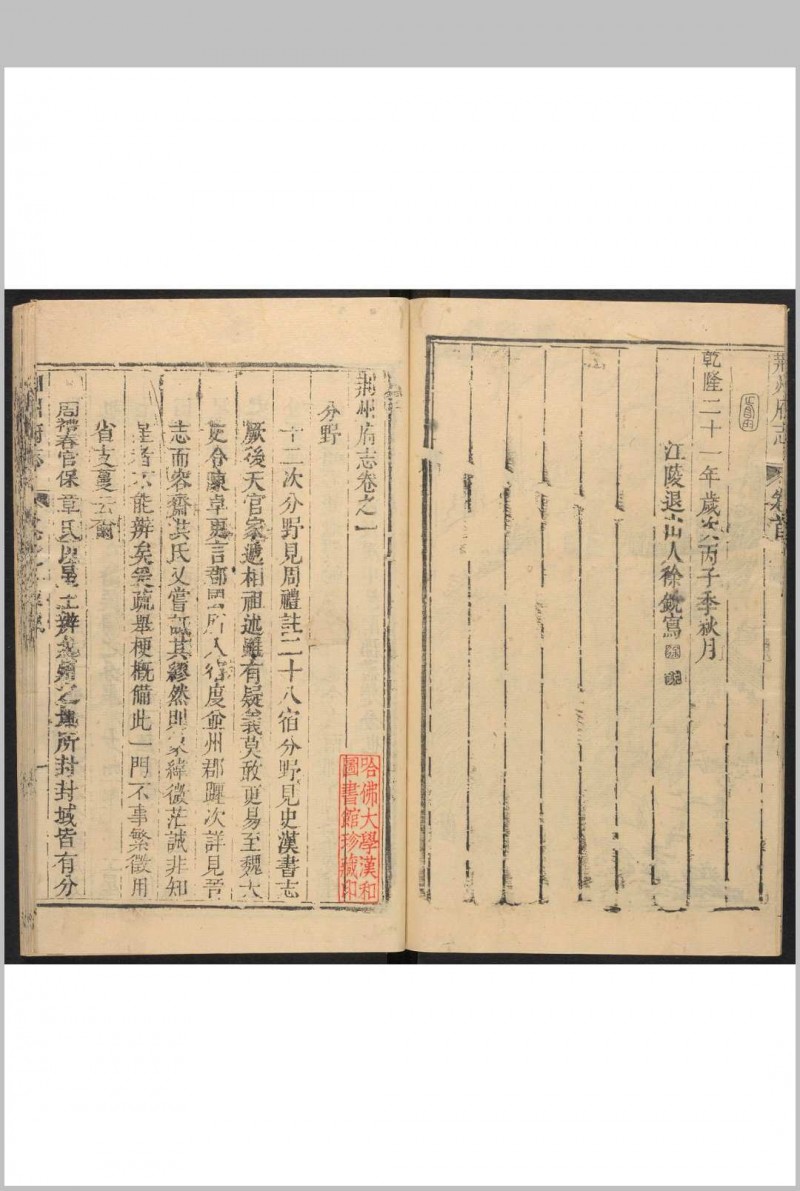 荆州府志
卷首
乾隆二十一年歲次丙子季秋月
江陵退山人徐鋭寫
荆州府志卷之一
分野
十二次分野見周禮註二十八宿分野見史漢書志
厥後天官家遞相祖述雖有疑義莫敢更易至魏太
史令陳卓更言郡國所入宿度兗州郡躔次詳見晉
志而容齋洪氏又嘗詆其繆然則象緯微茫誠非知
星者不能辨矣疏舉梗概備此一門不事繁徵用
省支蔓云爾
周禮春官保章氏以星土辨之地所封封域皆有分
哈佛大學漢和
圖書館珍藏印